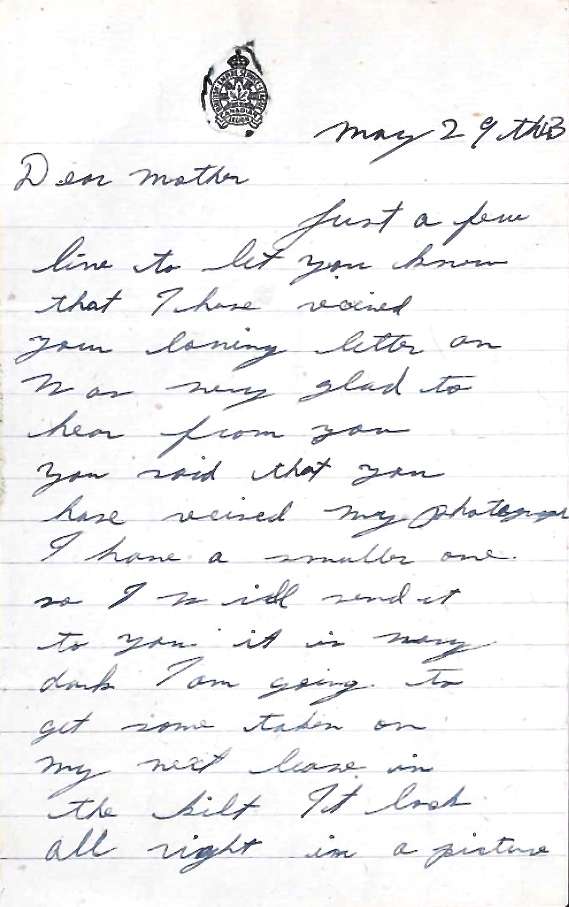 BRITISH EMPIRE SERVICE LEAGUE
CANADIAN LEGION
May 29th
Dear Mother
Just a few
line to let you know
that I have recived
your loving letter an
was very glad to
hear from you
you said that you
have reised my photograph
I have a smaller one.
so I will send it
to you it is vary
dark I am going. to
get some taken on
my next leave in
the kilt It look
all right in a picture